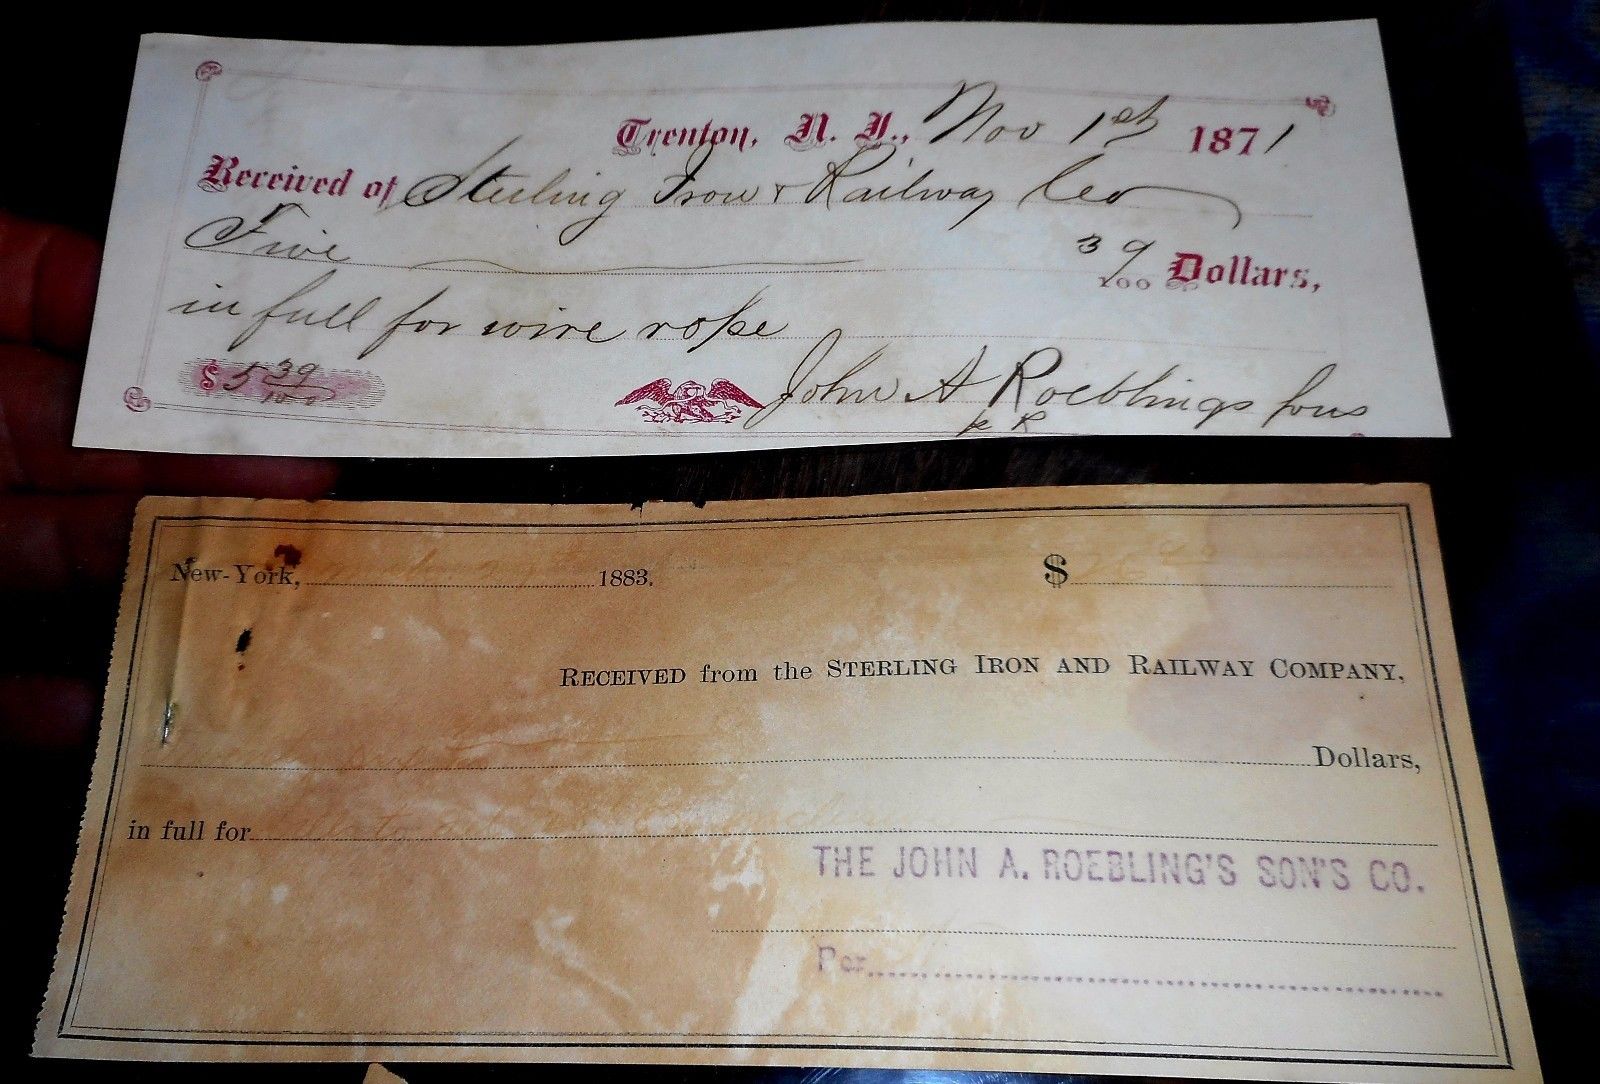 Trenton, N. J., Nov 1st 1871
Received of Sterling Iron & Railway Co
Five 39/100 Dollars,
in full for wire rope
$ 5 39/100
John A Roeblings Sons
New-York, 1883. $
RECEIVED from the STERLING IRON AND RAILWAY COMPANY,
Dollars,
in full for
THE JOHN A. ROEBLING'S SON'S CO.
Per